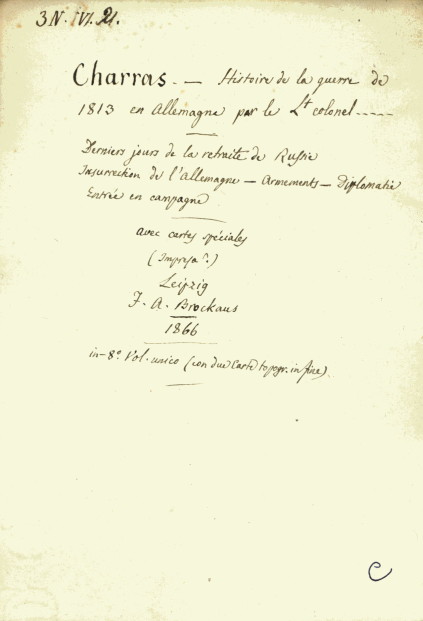 3N. IVI. 21.
Charras. — Histoire de la guerre de
1813 en Allemagne par le Lt colonel -----
Derniers jours de la retraite de Russie
Insurrection de l'Allemagne — Armements — Diplomatie
Entrée en campagne
avec cartes spéciales
(Impressa ?.)
Leipzig
F. A. Brockaus
1866
in-8º. Vol. unico (con due Carte topogr. in fine).
C